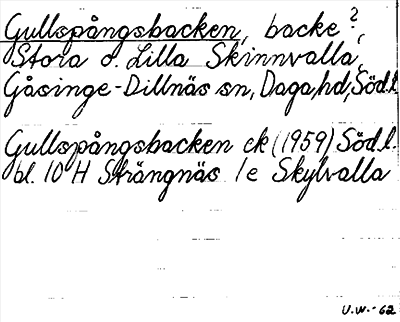 Gullspångsbacken, backe?,
Stora o. Lilla Skinnvalla,
Gåsinge-Dillnäs sn, Daga, hd, Söd.l.
Gullspångsbacken ek (1959) Söd.l.
bl. 10 H Strängnäs 1e Skylvalla
U.W.-62